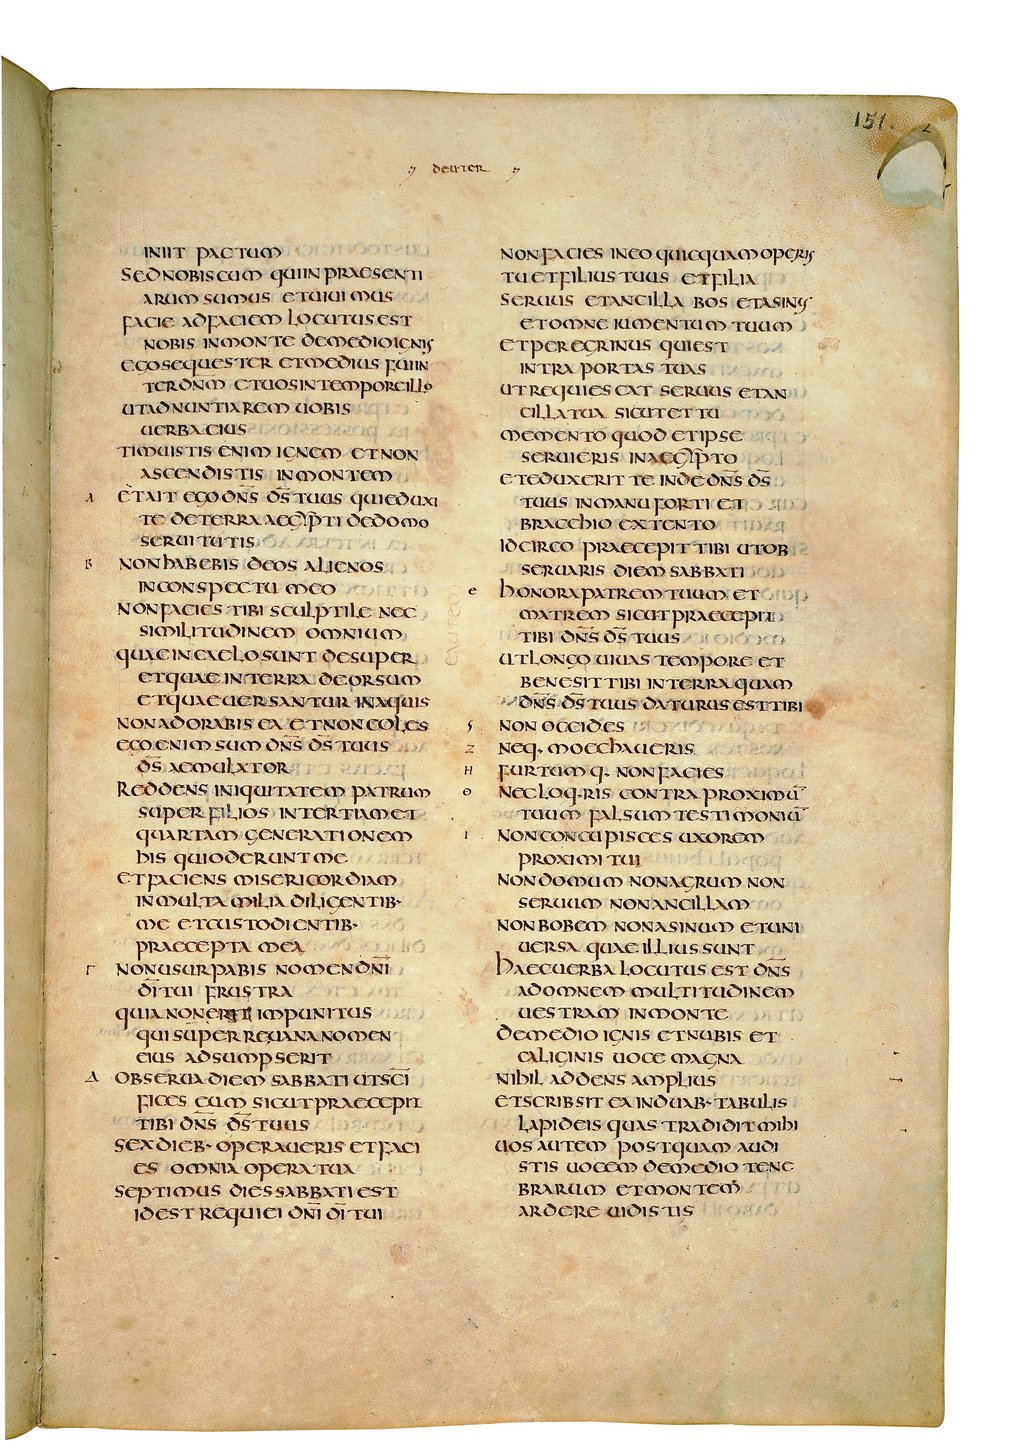 151
DEUTER
INIIT PACTUM
SED NOBISCUM QUI IN PRAESENTI
ARUM SUMUS ET UIUIMUS
FACIE AD FACIEM LOCUTUS EST
NOBIS IN MONTE DE MEDIO IGNIS
EGO SEQUESTER ET MEDIUS FUI IN
TER DN̅M̅ ET UOS IN TEMPORE ILLO
UT ADNUNTIAREM UOBIS
UERBA EIUS
TIMUISTIS ENIM IGNEM ET NON
ASCENDISTIS IN MONTEM
Α ET AIT EGO DN̅S̅ D̅S̅ TUUS QUI EDUXI
TE DE TERRA AEGYPTI DE DOMO
SERUITUTIS
Β NON HABEBIS DEOS ALIENOS
IN CONSPECTU MEO
NON FACIES TIBI SCULPTILE NEC
SIMILITUDINEM OMNIUM
QUAE IN CAELO SUNT DESUPER
ET QUAE IN TERRA DEORSUM
ET QUAE UERSANTUR IN AQUIS
NON ADORABIS EA ET NON COLES
EGO ENIM SUM DN̅S̅ D̅S̅ TUUS
D̅S̅ AEMULATOR
REDDENS INIQUITATEM PATRUM
SUPER FILIOS IN TERTIAM ET
QUARTAM GENERATIONEM
HIS QUI ODERUNT ME
ET FACIENS MISERICORDIAM
IN MULTA MILIA DILIGENTIB·
ME ET CUSTODIENTIB·
PRAECEPTA MEA
Γ NON USURPABIS NOMEN DN̅I̅
D̅I̅ TUI FRUSTRA
QUIA NON ERIT IMPUNITUS
QUI SUPER RE UANA NOMEN
EIUS ADSUMPSERIT
Δ OBSERUA DIEM SABBATI UT SC̅I̅
FICES EUM SICUT PRAECEPIT
TIBI DN̅S̅ D̅S̅ TUUS
SEX DIEB· OPERAUERIS ET FACI
ES OMNIA OPERA TUA
SEPTIMUS DIES SABBATI EST
ID EST REQUIEI DN̅I̅ D̅I̅ TUI
NON FACIES IN EO QUICQUAM OPERIS
TU ET FILIUS TUUS ET FILIA
SERUUS ET ANCILLA BOS ET ASINUS
ET OMNE IUMENTUM TUUM
ET PEREGRINUS QUI EST
INTRA PORTAS TUAS
UT REQUIESCAT SERUUS ET AN
CILLA TUA SICUT ET TU
MEMENTO QUOD ET IPSE
SERUIERIS IN AEGYPTO
ET EDUXERIT TE INDE DN̅S̅ D̅S̅
TUUS IN MANU FORTI ET
BRACCHIO EXTENTO
IDCIRCO PRAECEPIT TIBI UT OB
SERUARIS DIEM SABBATI
Ε HONORA PATREM TUUM ET
MATREM SICUT PRAECEPIT
TIBI DN̅S̅ D̅S̅ TUUS
UT LONGO UIUAS TEMPORE ET
BENE SIT TIBI IN TERRA QUAM
DN̅S̅ D̅S̅ TUUS DATURUS EST TIBI
Ϛ NON OCCIDES
Ζ NEQ· MOECHAUERIS
Η FURTUMQ· NON FACIES
Θ NEC LOQ·RIS CONTRA PROXIMU̅
TUUM FALSUM TESTIMONIU̅
Ι NON CONCUPISCES UXOREM
PROXIMI TUI
NON DOMUM NON AGRUM NON
SERUUM NON ANCILLAM
NON BOBEM NON ASINUM ET UNI
UERSA QUAE ILLIUS SUNT
HAEC UERBA LOCUTUS EST DN̅S̅
AD OMNEM MULTITUDINEM
UESTRAM IN MONTE
DE MEDIO IGNIS ET NUBIS ET
CALIGINIS UOCE MAGNA
NIHIL ADDENS AMPLIUS
ET SCRIBSIT EA IN DUAB· TABULIS
LAPIDEIS QUAS TRADIDIT MIHI
UOS AUTEM POSTQUAM AUDI
STIS UOCEM DE MEDIO TENE
BRARUM ET MONTEM
ARDERE UIDISTIS